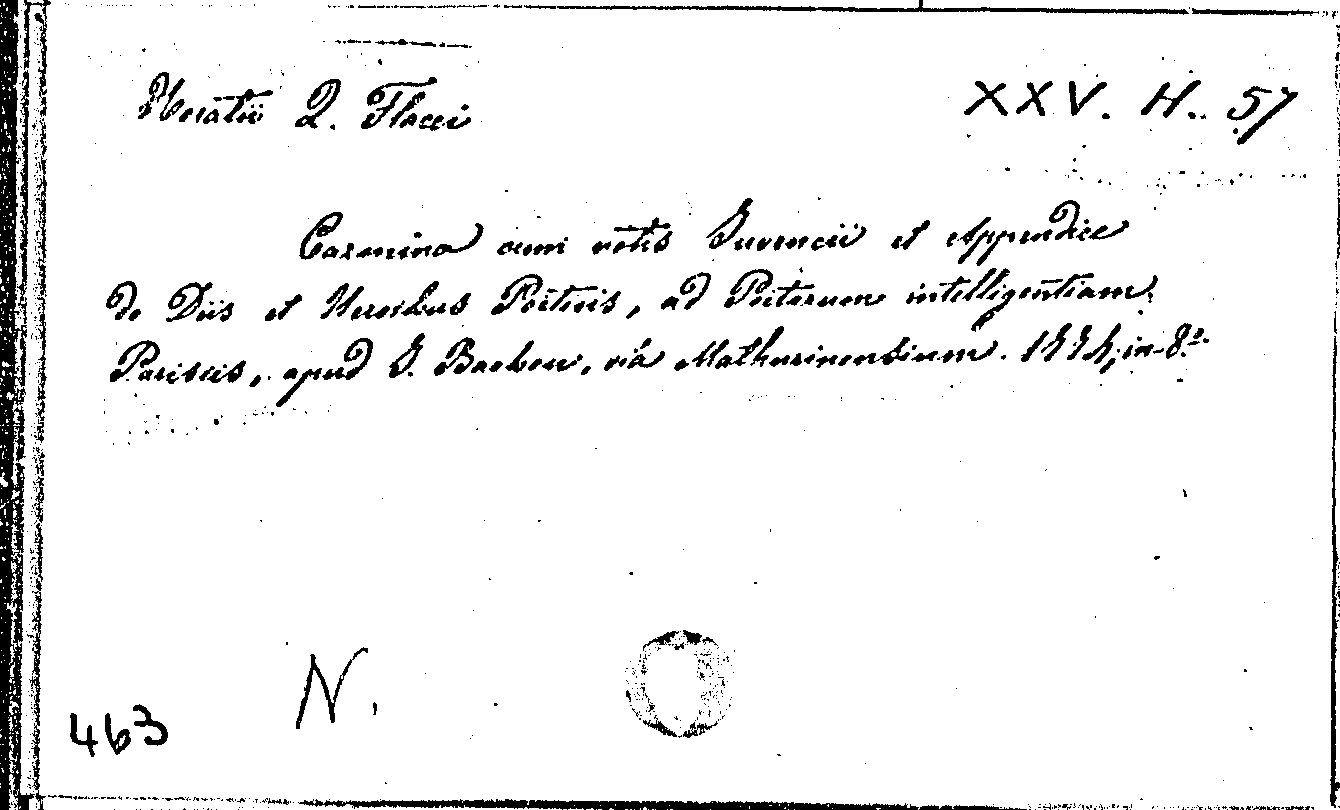 Horatii Q. Flacci
XXV. H. 57
Carmina cum notis Juvencii et Appendice
de Diis et Heroibus Poeticis, ad Poetarum intelligentiam.
Parisiis, apud J. Barbou, viâ Mathurinensium. in-8º.
N.
463